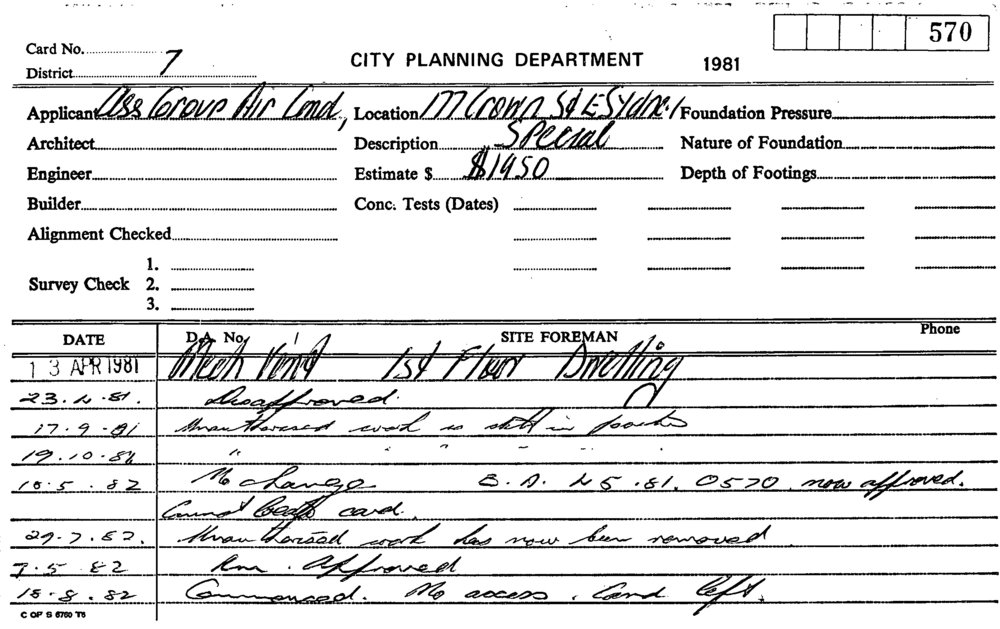 570
Card No.
District 7
CITY PLANNING DEPARTMENT 1981
Applicant Ass Group Air Cond, Location 177 Crown St E Sydney Foundation Pressure
Architect Description Special Nature of Foundation
Engineer Estimate $ $1950 Depth of Footings
Builder Conc. Tests (Dates)
Alignment Checked
1.
Survey Check 2.
3.
DATE D.A. No. SITE FOREMAN Phone
13 APR 1981 Mech Vent 1st Floor Dwelling
23.4.81. Disapproved.
17.9.81 Unauthorised work is still in
19.10.81 " " " " "
18.5.82 No change B.A. 45.81.0570 now approved.
card.
29.7.82. Unauthorised work has now been removed
7.5.82 Approved
18.8.82 Commenced. No access. Card left.
C OF S 6760 T5